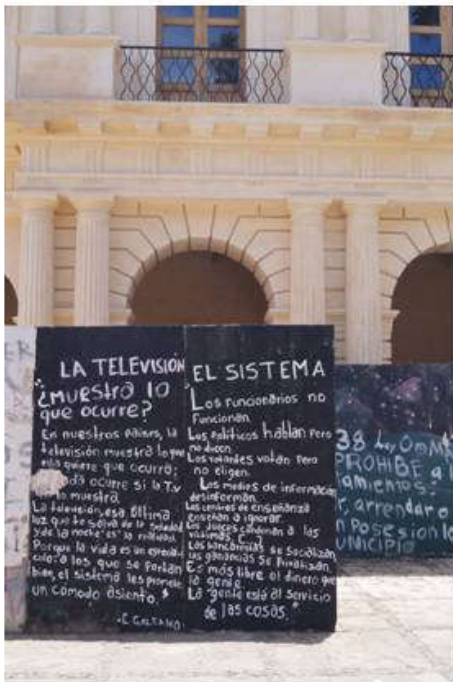 LA TELEVISIÓN
¿MUESTRA LO
que ocurre?
En nuestros países, la
televisión muestra lo que
ella quiere que ocurra;
da ocurre si la T.V
lo muestra
La televisión, esa última
luz que te salva de la soledad
y de la noche es la realidad.
Porque la vida es un espectá-
culo: a los que se portan
bien, el sistema les promete
un cómodo asiento."
GALEANO.
EL SISTEMA
Los funcionarios no
Funcionan
Los Políticos hablan Pero
no dicen.
Los votantes votan Pero
no eligen.
Los medios de información
desinforman
Los centros de enseñanza
enseñan a ignorar
Los Jueces condenan a las
víctimas
Las bancarrotas se Socializan,
las ganancias se Privatizan.
Es más libre el dinero que
la gente.
La gente está al servicio
de las cosas."
ER
38
PROHIBE a
amientos:
r, arrendar o
n Posesion lo
UNICIPIO